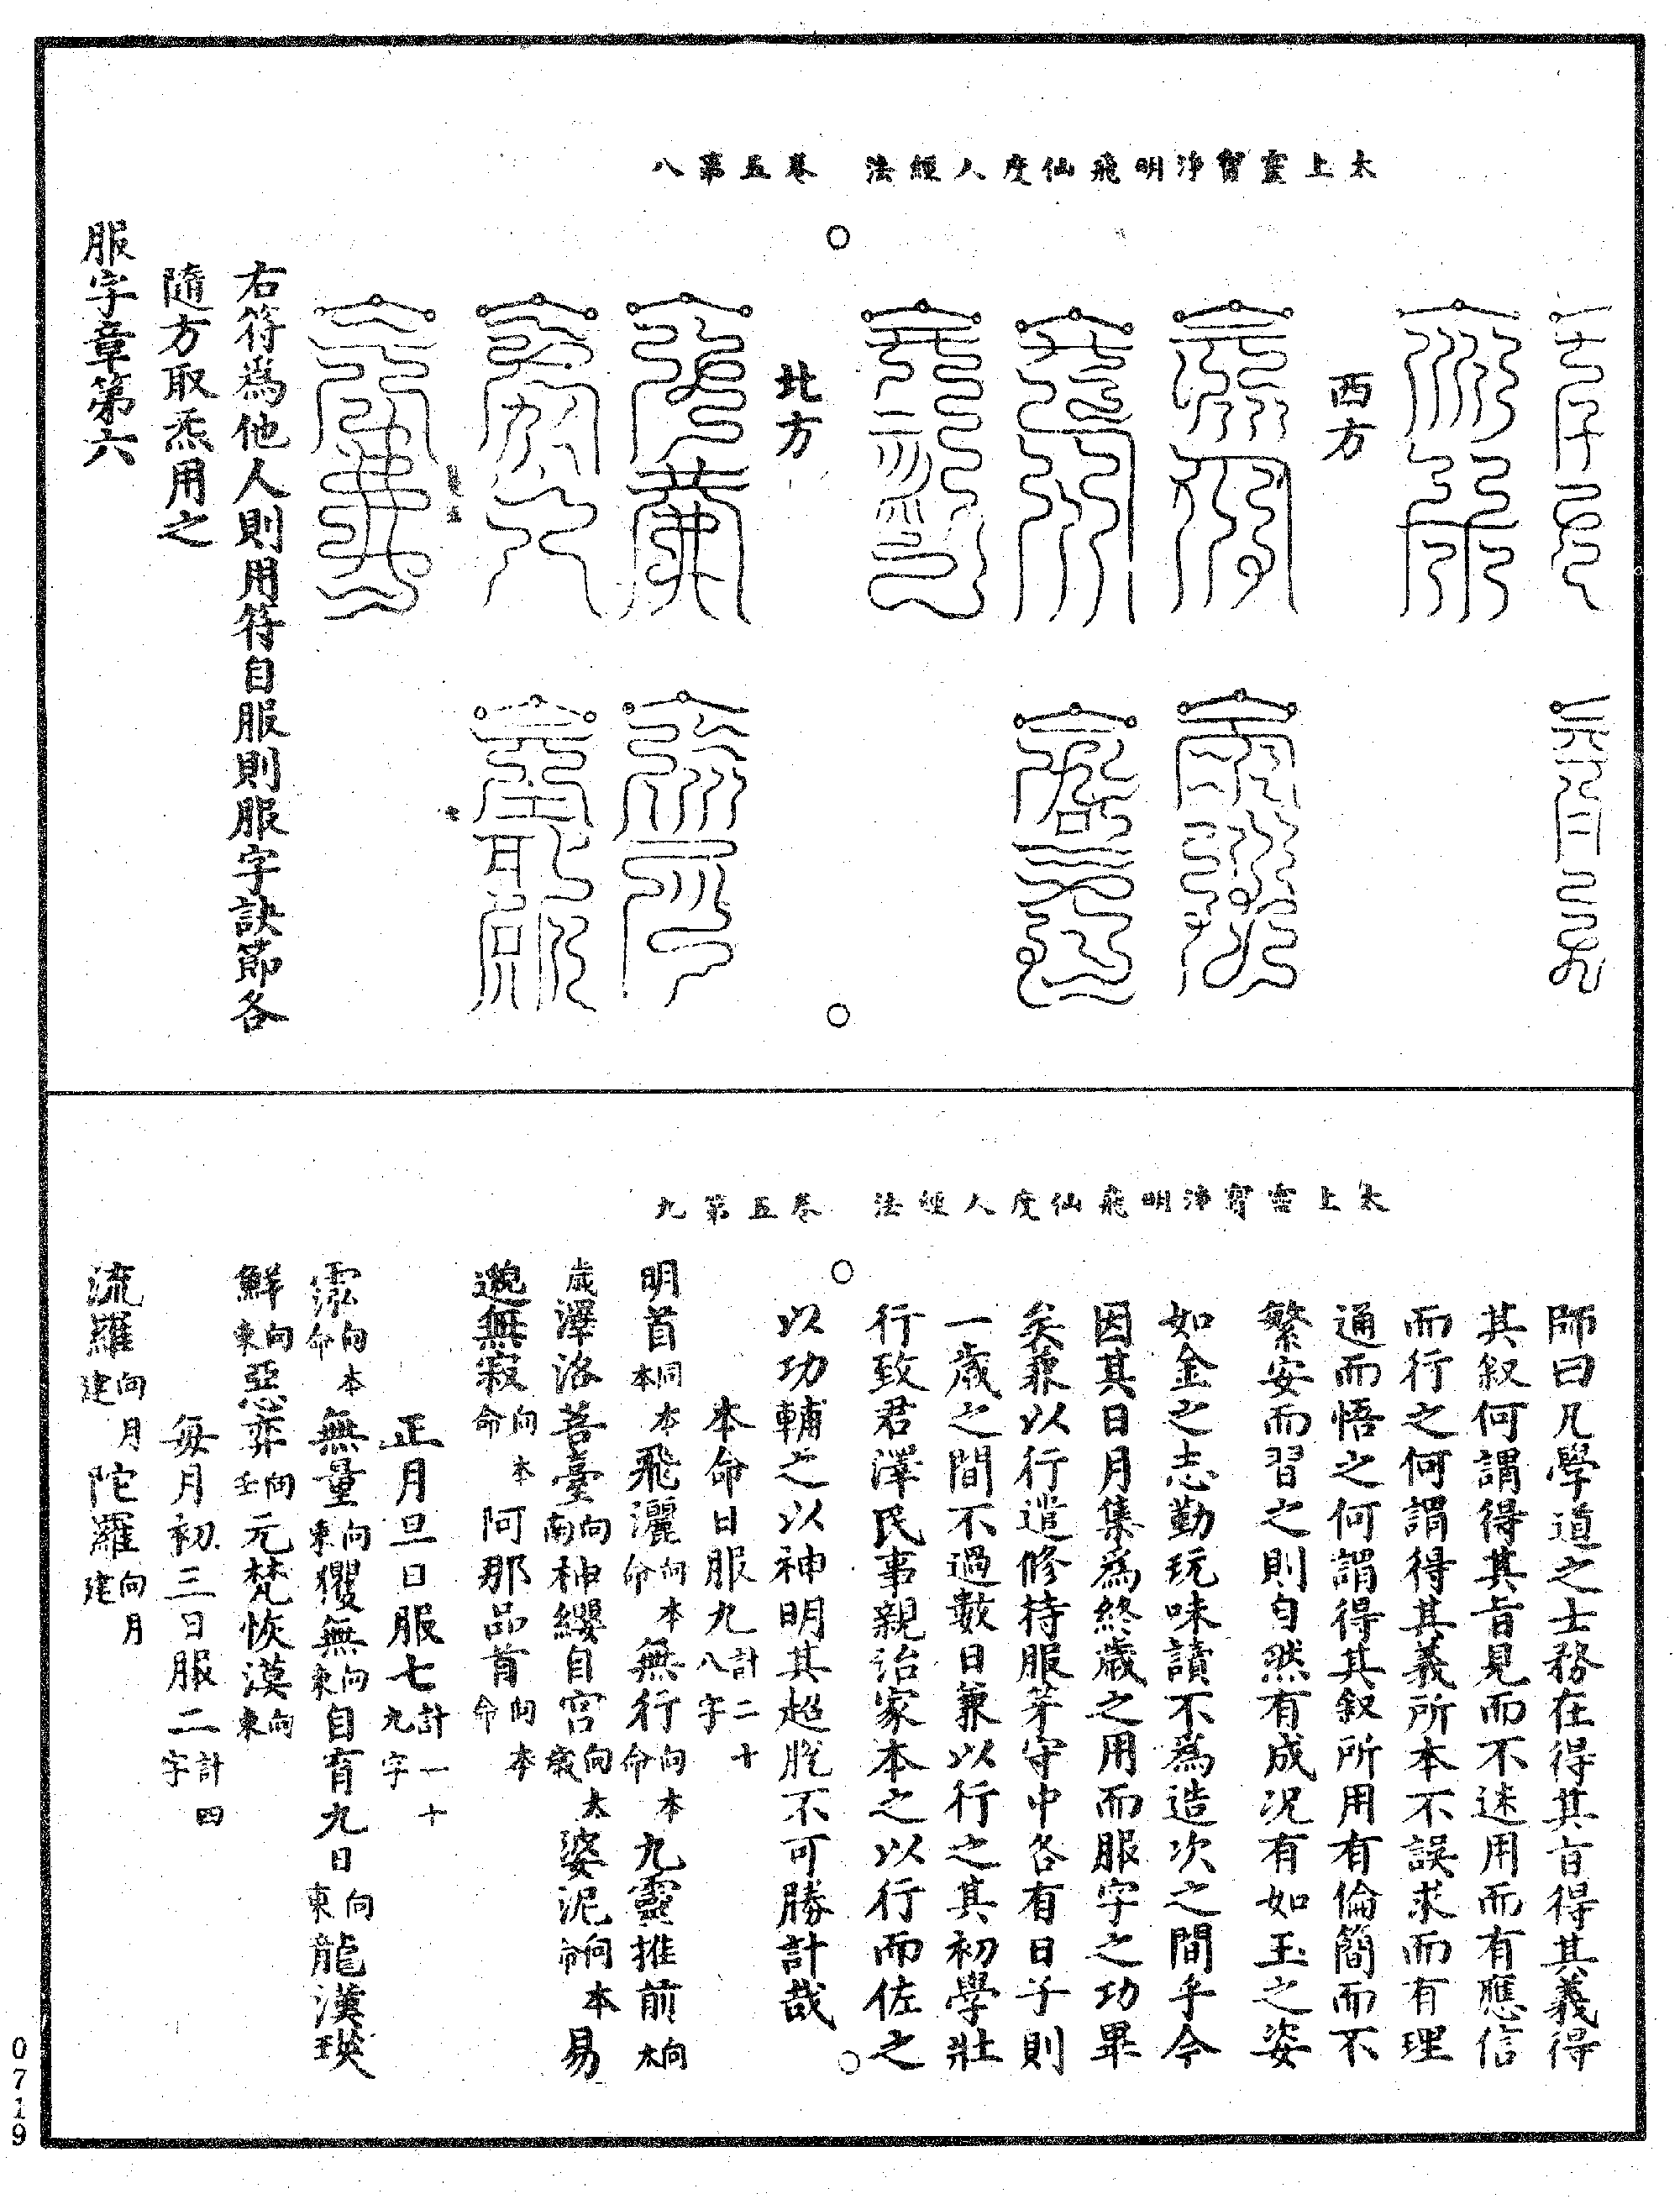 太上靈寶淨明飛仙度人經法　卷五第八
西方
北方
右符為他人則用符自服則服字訣節各
隨方取炁用之
服字章第六
太上靈寶淨明飛仙度人經法　卷五第九
師曰凡學道之士務在得其旨得其義得
其叙何謂得其旨見而不迷用而有應信
而行之何謂得其義所本不誤求而有理
通而悟之何謂得其叙所用有倫簡而不
繁安而習之則自然有成况有如玉之姿
如金之志勤玩味讀不為造次之間乎今
因其日月集為終歲之用而服字之功畢
矣兼以行遣修持服茅守中各有日子則
一歲之間不過數日兼以行之其初學壯
行致君澤民事親治家本之以行而佐之
以功輔之以神明其超脫不可勝計哉
本命日服九計二十八字
明首向本本飛灑向本命無行向本命九靈推前向太
歲澤洛菩臺向南神纓自宮向太歲婆泥向本命易
邈無寂向本命阿那品首向本命
正月旦日服七計一十九字
向本命無量向東玃無向東自育九日向東龍漢瑛
鮮向東惡弈向壬元梵恢漠向東
每月初三日服二計四字
流羅向月建陀羅向月建
0719